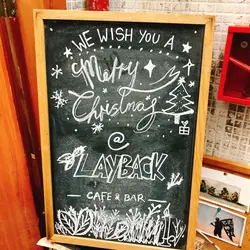 WE WISH YOU A
Merry
Christmas
@
LAYBACK
CAFE & BAR